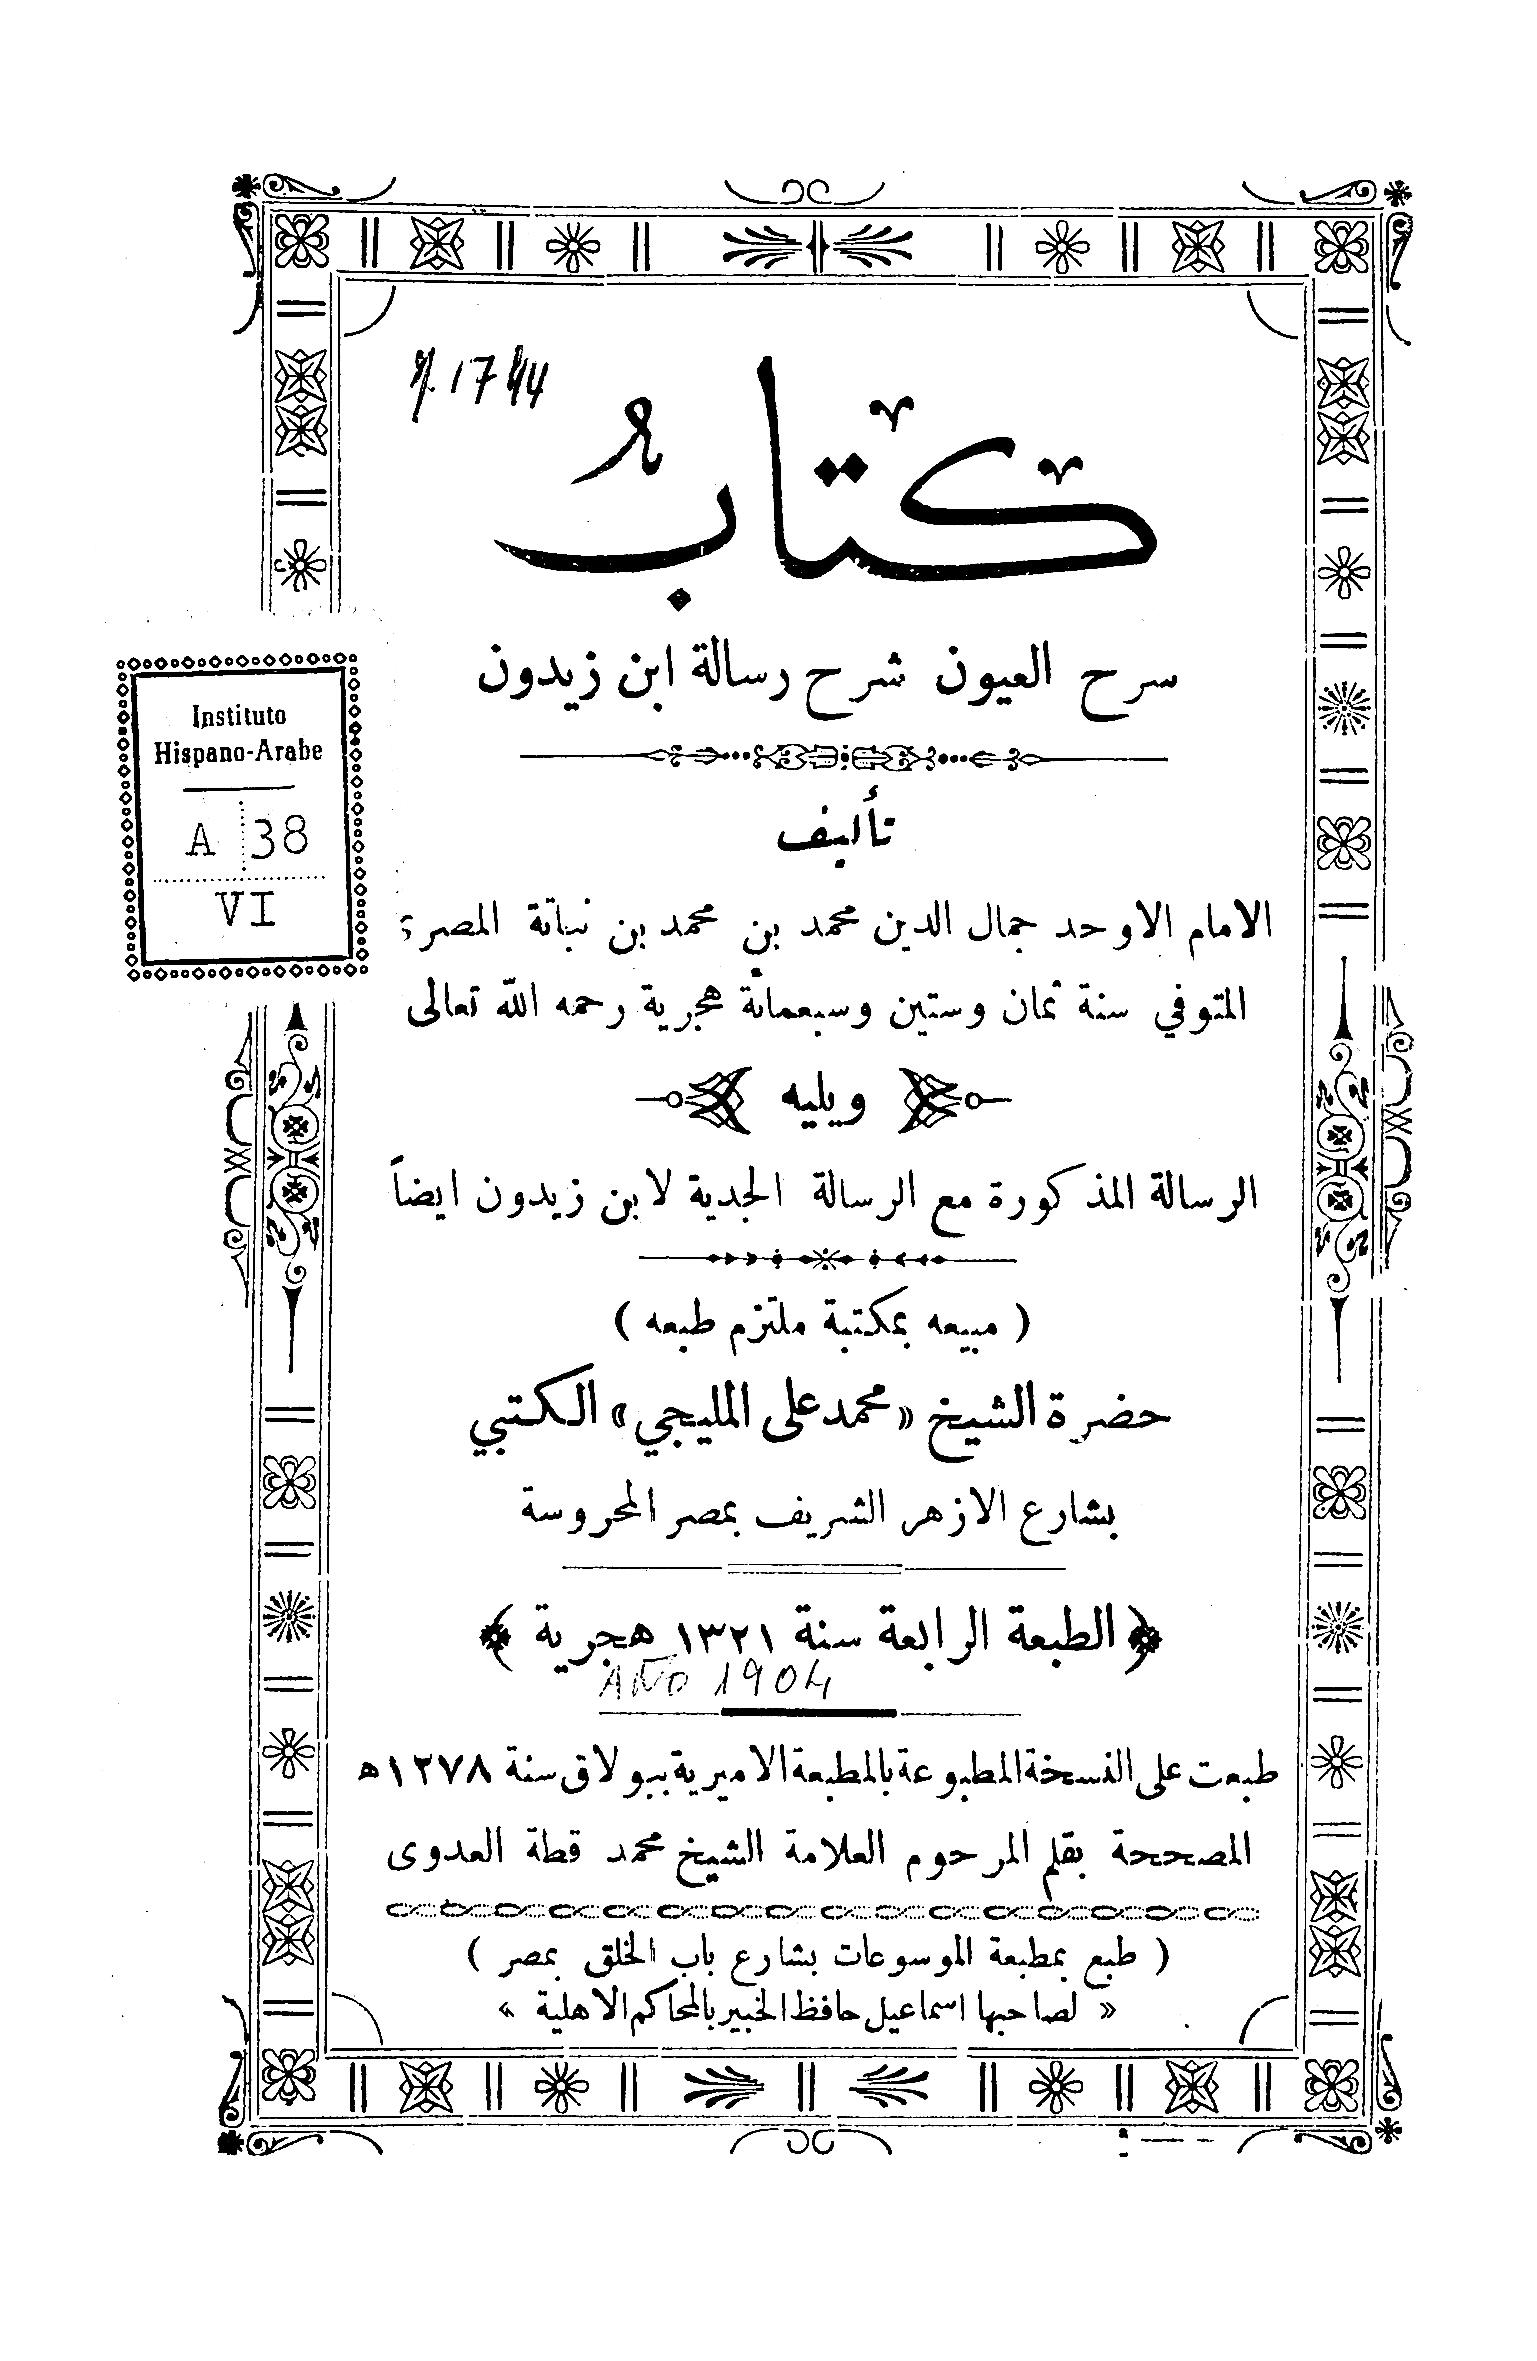 r. 1744
كتابُ
سرح العيون شرح رسالة ابن زيدون
Instituto
Hispano-Arabe
A 38
VI
تأليف
الامام الاوحد جمال الدين محمد بن محمد بن نباتة المصرى
المتوفي سنة ثمان وستين وسبعمائة هجرية رحمه الله تعالى
ويليه
الرسالة المذكورة مع الرسالة الجدية لابن زيدون ايضاً
( مبيعه بمكتبة ملتزم طبعه )
حضرة الشيخ «محمد على المليجي» الكتبي
بشارع الازهر الشريف بمصر المحروسة
﴿ الطبعة الرابعة سنة ١٣٢١ هجرية ﴾
AÑO 1904
طبعت على النسخة المطبوعة بالمطبعة الاميرية ببولاق سنة ١٢٧٨ ه
المصححة بقلم المرحوم العلامة الشيخ محمد قطة العدوى
( طبع بمطبعة الموسوعات بشارع باب الخلق بمصر )
« لصاحبها اسماعيل حافظ الخبير بالمحاكم الاهلية »